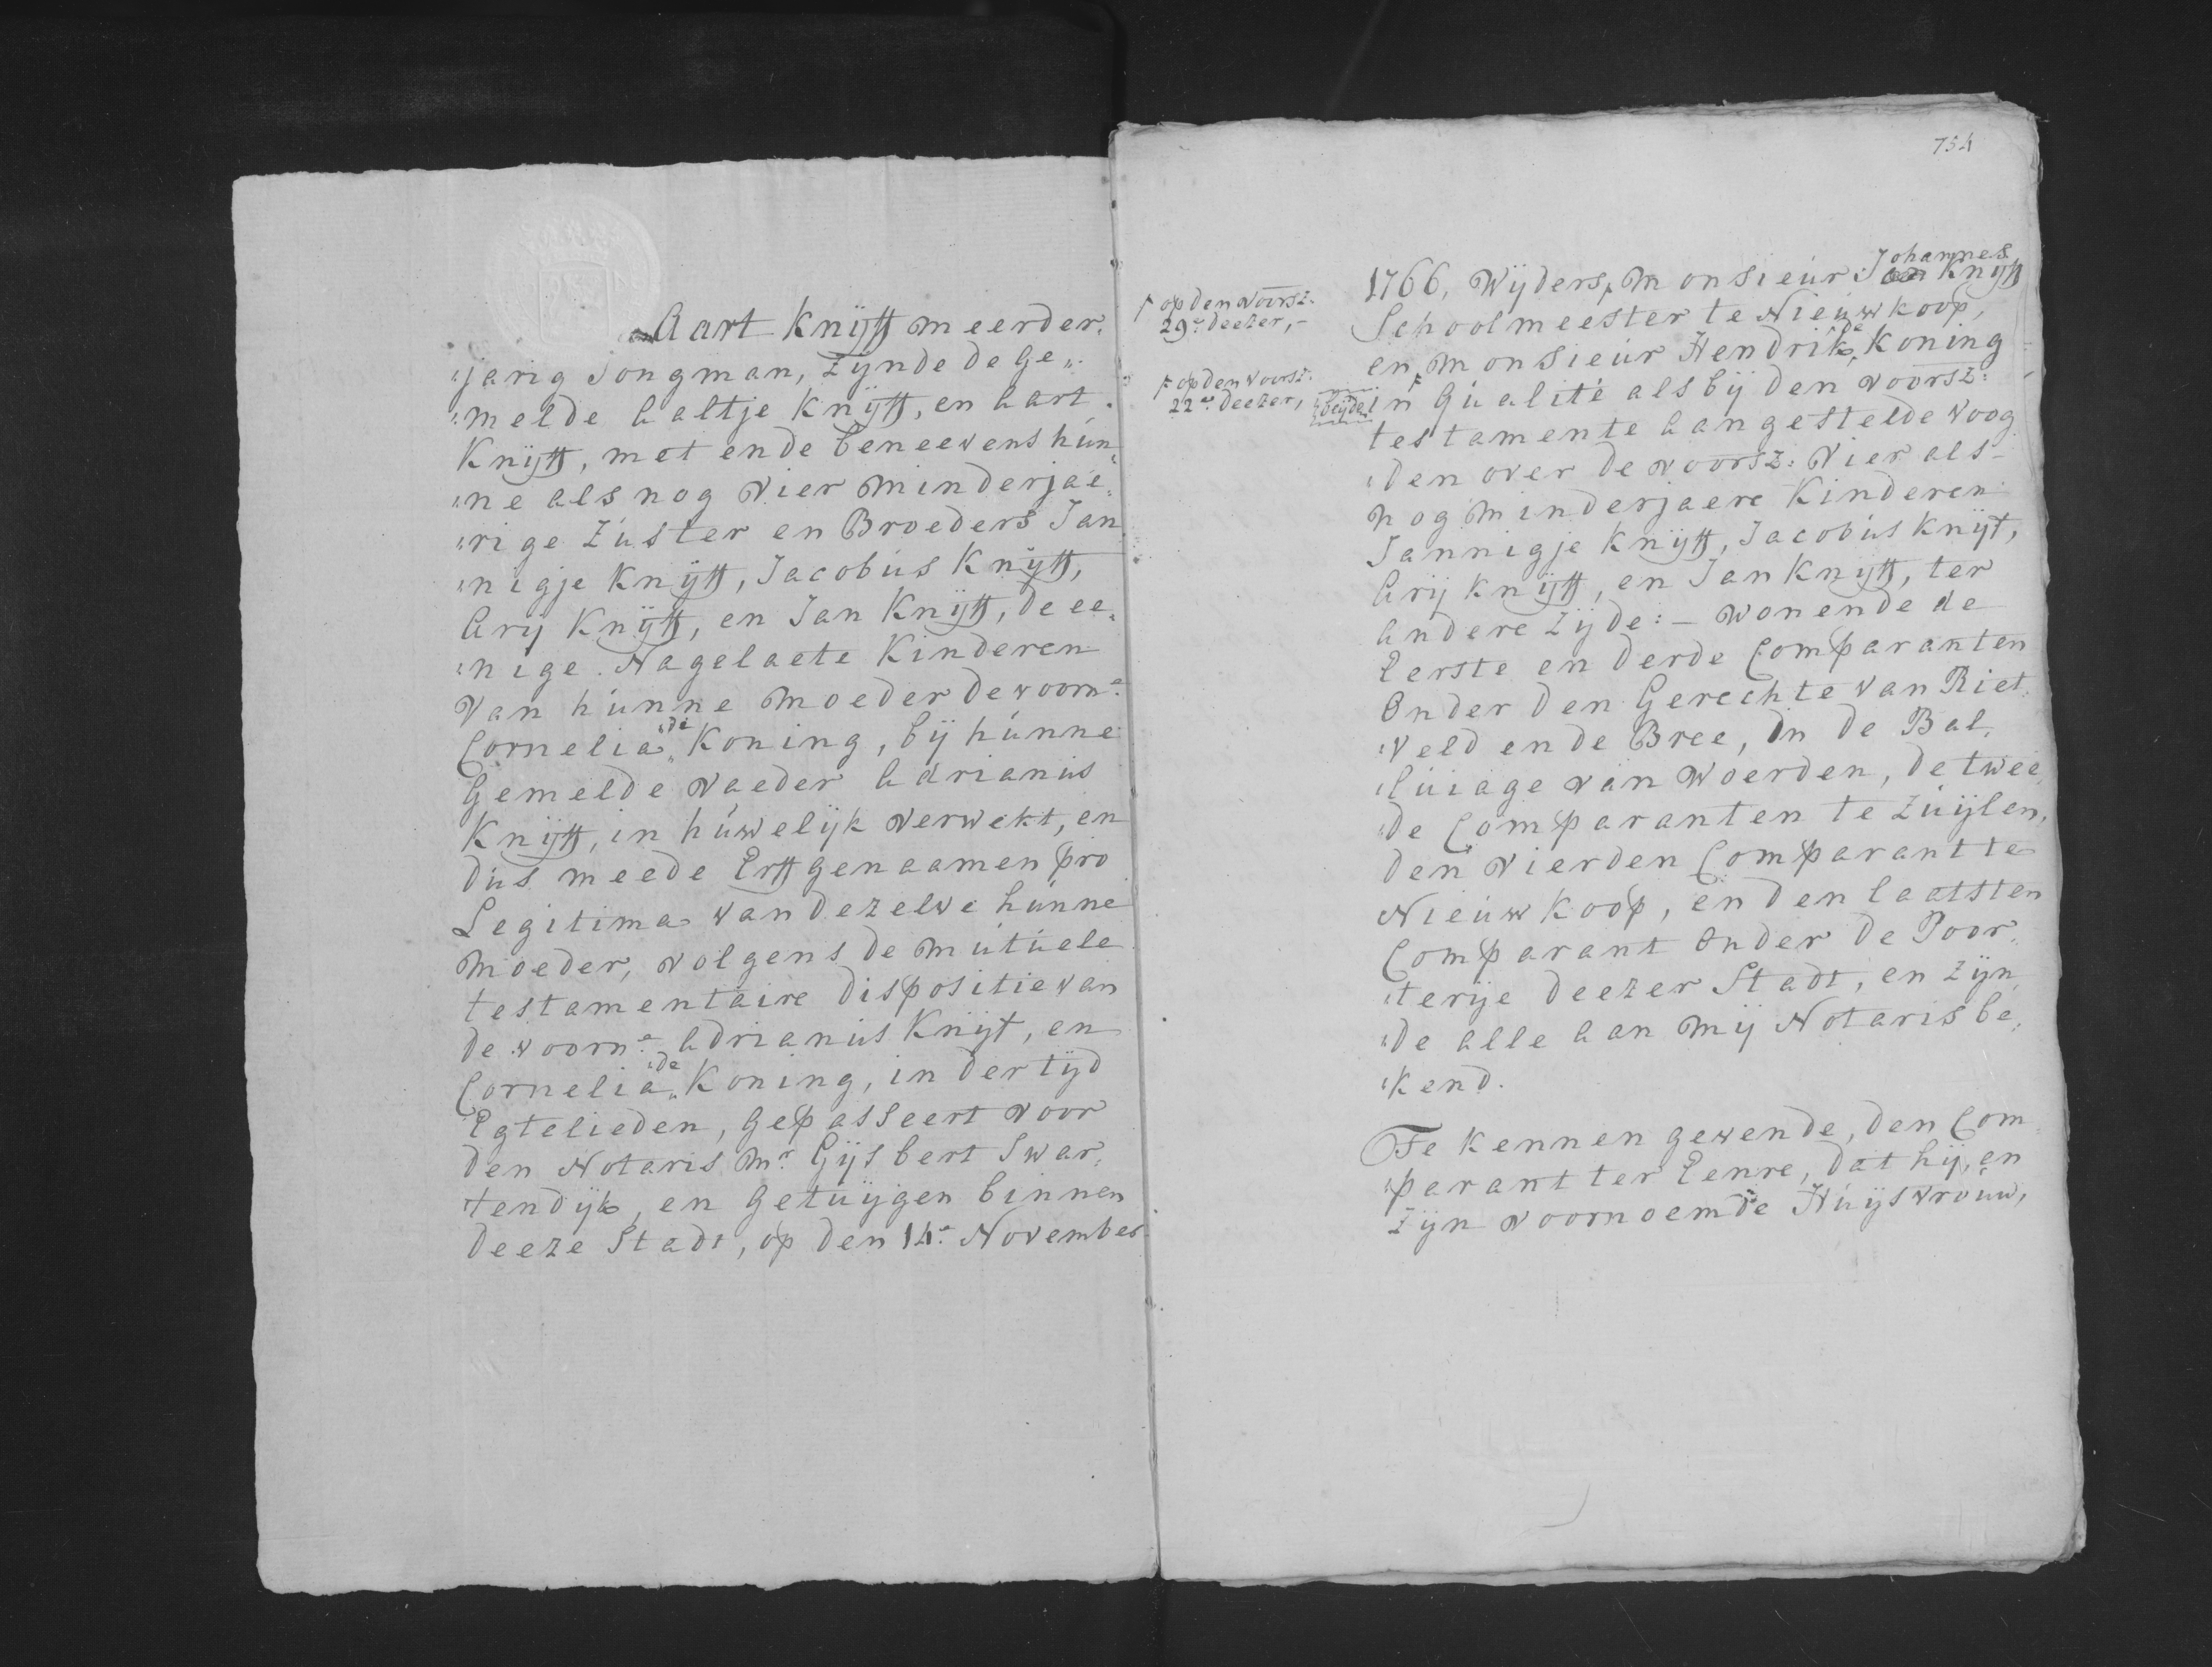 Aart Knijff meerder„
„jarig Jongman, Zijnde de Ge„
„melde Aaltje Knijff, en Aart
Knijff, met ende beneevens hún„
„ne als nog Vier Minderjae„
„rige Zúster en Broeders Jan„
„nigje Knijff, Jacobús Knijff,
Arij Knijff, en Jan Knijff, de ee„
„nige Nagelaete Kinderen
Van húnne Moeder de voorne
Cornelia „de Koning, bij húnne
Gemelde Vaeder Adrianús
Knijff, in húwelijk verwekt, en
dús meede Erffgenaamen pro
Legitima van dezelve húnne
Moeder, volgens de Mútúele
testamentaire dispositie van
de voorne Adrianús Knijf, en
Cornelia „de Koning, in der tijd
Egtelieden, Gepasseert voor
den Notaris Mr Gijsbert Swar„
„tendijk, en Getúijgen binnen
deeze Stadt, op den 14e November
754
1766, Wijders, Monsieúr Johannes Knijff
⊦ op den voorsz:
29e deezer,–
Schoolmeester te Nieúwkoop,
en Monsieúr Hendrik „de Koning
⊦ op den voorsz:
22e deezer,
beijde
in Qúalité als bij den voorsz:
testamente Aangestelde Voog
„den over de voorsz: Vier als–
nog Minderjaere Kinderen
Jannigje Knijff, Jacobús Knijf,
Arij Knijff, en Jan Knijff, ter
Andere Zijde: – Wonende de
Eerste en derde Comparanten
Onder den Gerechte van Riet„
„veld en de Bree, In de Bal„
„lúiage van Woerden, de twee„
„de Comparanten te Zúijlen,
den vierden Comparant te
Nieúwkoop, en den laatsten
Comparant Onder de Poor„
„terije deezer Stadt, en Zijn„
„de alle Aan Mij Notaris be„
„kend.
Te kennen gevende, den Com„
„parant ter Eenre, dat hij, en
Zijn voornoemde Húijsvroúw,